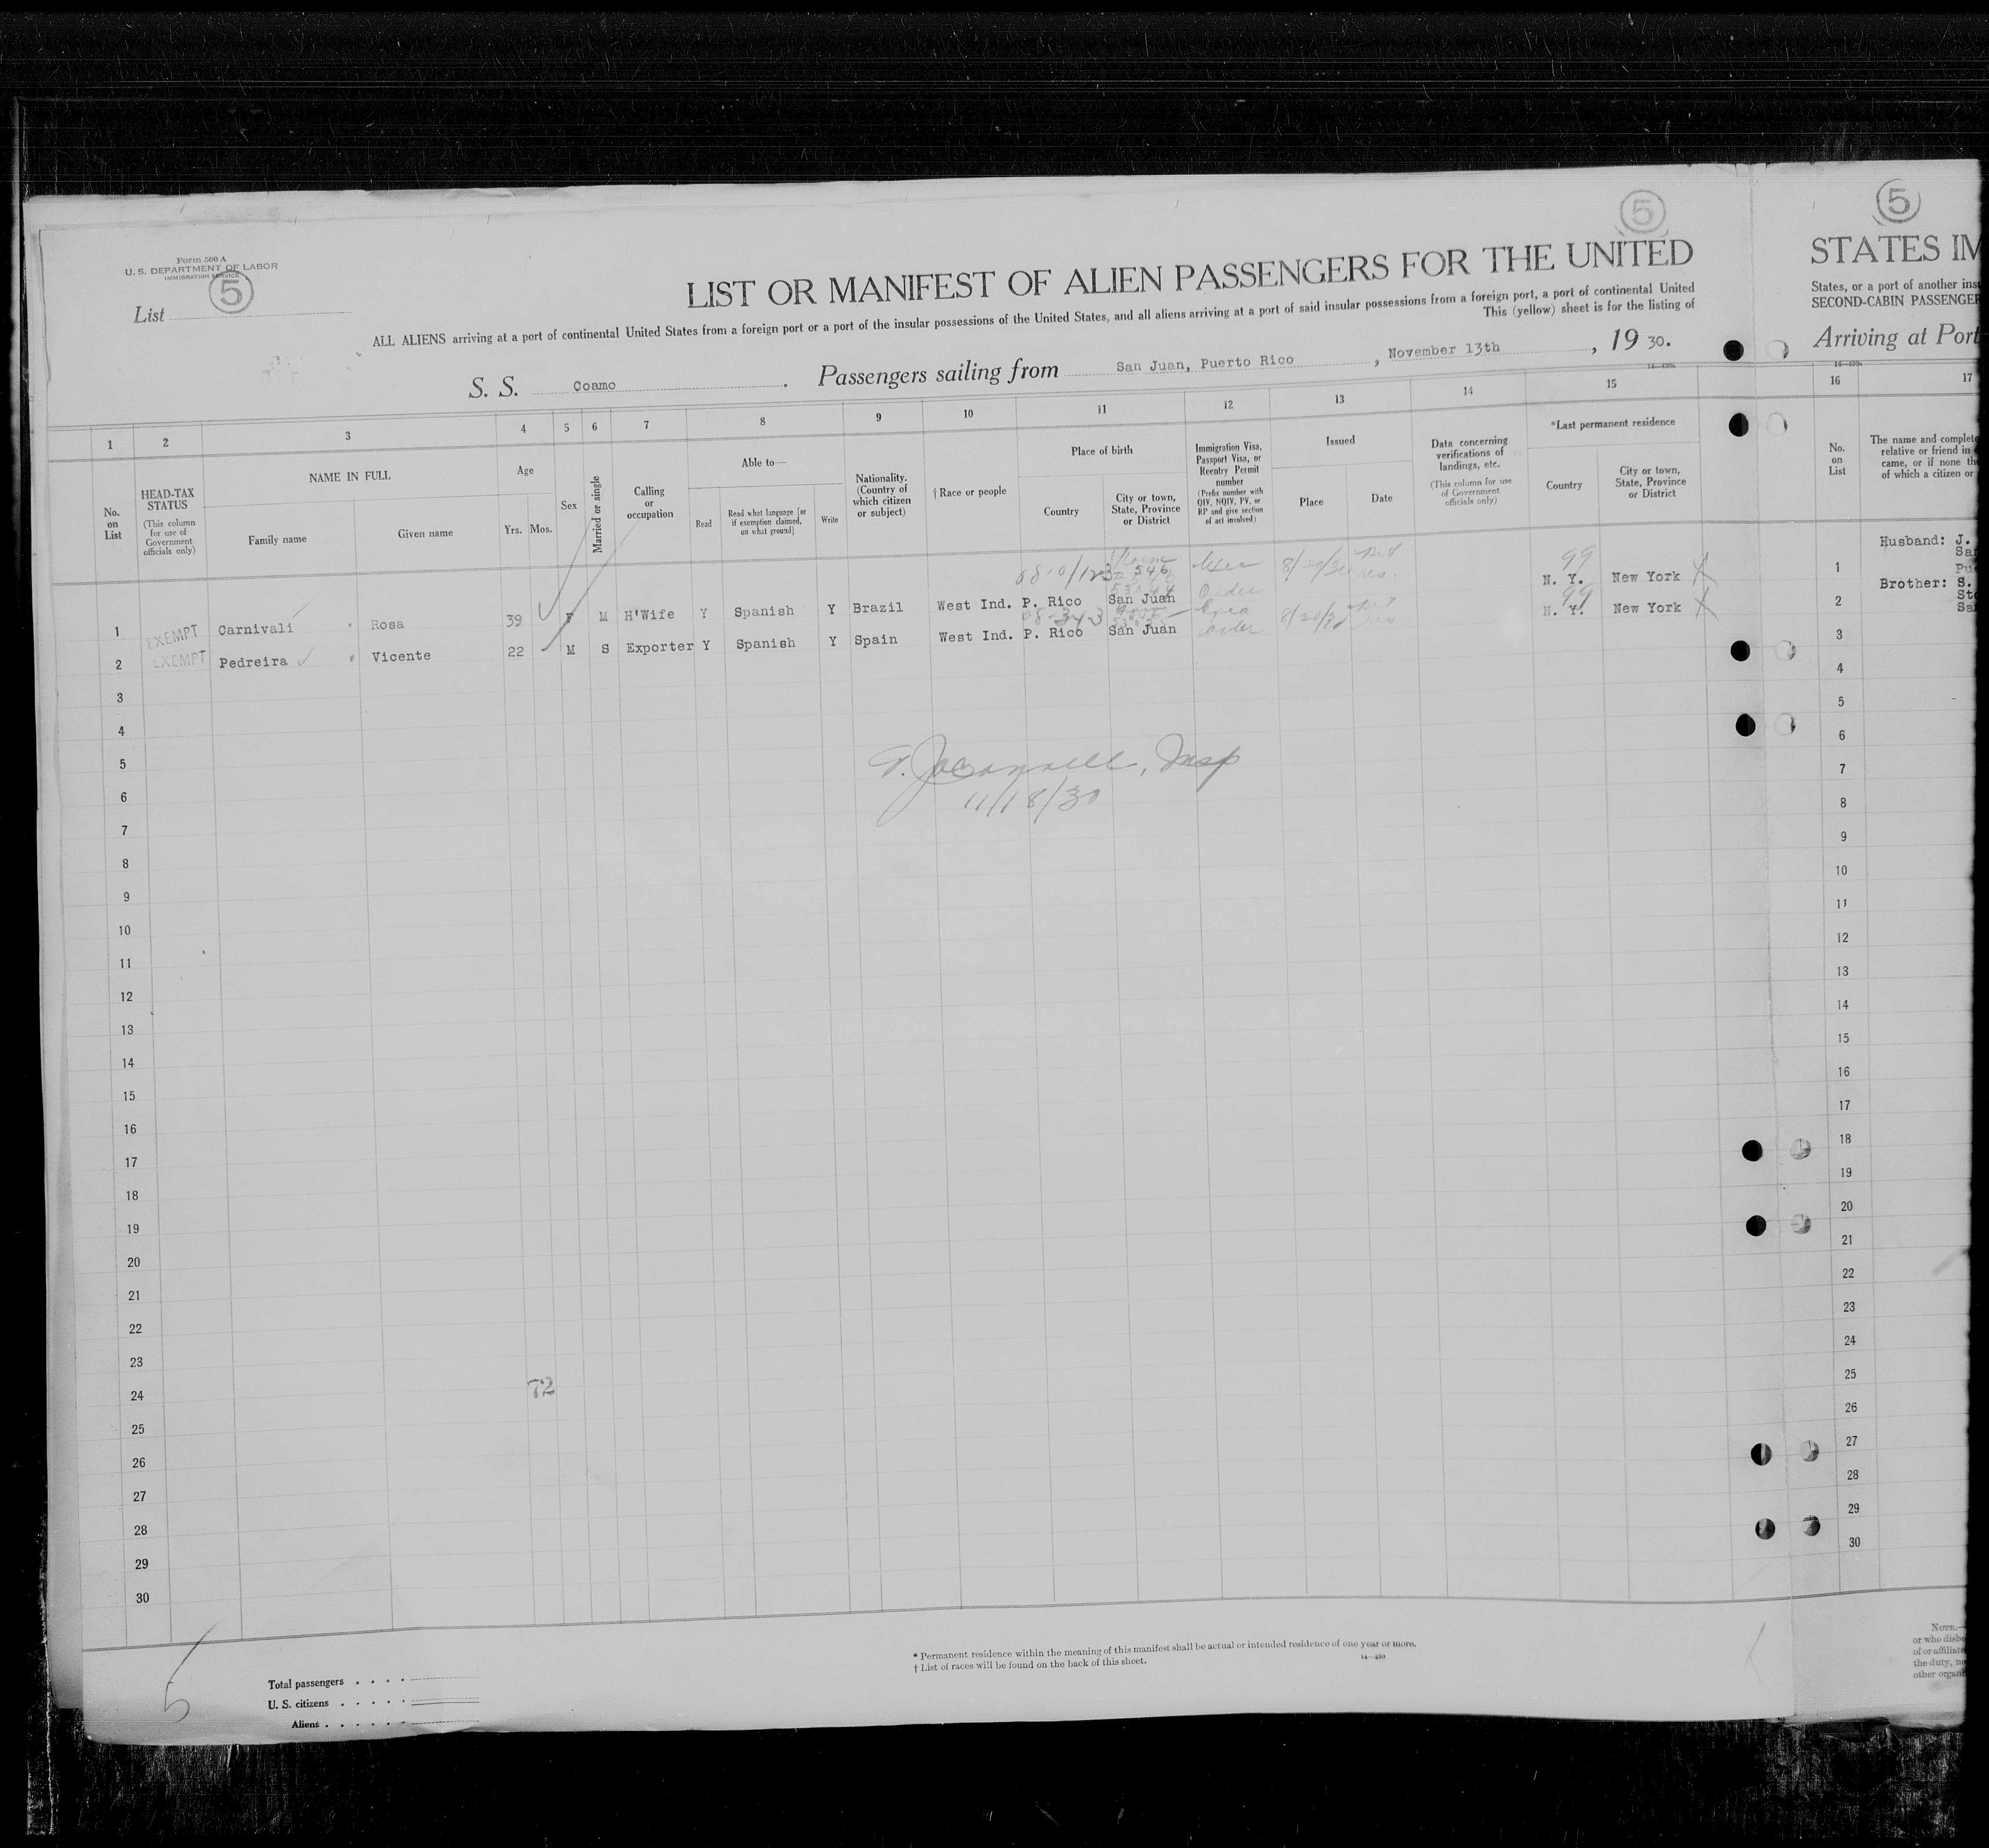 5
5
Form 500 A
U. S. DEPARTMENT OF LABOR
IMMIGRATION SERVICE
List 5
LIST OR MANIFEST OF ALIEN PASSENGERS FOR THE UNITED
STATES IM
ALL ALIENS arriving at a port of continental United States from a foreign port or a port of the insular possessions of the United States, and all aliens arriving at a port of said insular possessions from a foreign port, a port of continental United
This (yellow) sheet is for the listing of
States, or a port of another ins
SECOND-CABIN PASSENGER
S. S. Coamo. Passengers sailing from San Juan, Puerto Rico, November 13th, 1930.
Arriving at Port
1 2 3 4 5 6 7 8 9 10 11 12 13 14 15 16 17
No. on List
HEAD-TAX STATUS
(This column for use of Government officials only)
NAME IN FULL
Family name
Given name
Age
Yrs. Mos.
Sex
Married or single
Calling or occupation
Able to—
Read
Read what language [or if exemption claimed, on what ground]
Write
Nationality. (Country of which citizen or subject)
† Race or people
Place of birth
Country
City or town, State, Province or District
Immigration Visa, Passport Visa, or Reentry Permit number
(Prefix number with QIV, NQIV, PV, or RP and give section of act involved)
Issued
Place
Date
Data concerning verifications of landings, etc.
(This column for use of Government officials only)
*Last permanent residence
Country
City or town, State, Province or District
No. on List
The name and complete
relative or friend in
came, or if none th
of which a citizen or
99
1 EXEMPT Carnivali Rosa 39 F M H'Wife Y Spanish Y Brazil West Ind. P. Rico San Juan Order 8/20/30 N. Y. New York
1 Husband: J.
99
2 EXEMPT Pedreira Vicente 22 M S Exporter Y Spanish Y Spain West Ind. P. Rico San Juan Exec Order 8/20/30 N. Y. New York
2 Brother: S.
3 3
4 4
5 5
Insp
11/18/30
6 6
7 7
8 8
9 9
10 10
11 11
12 12
13 13
14 14
15 15
16 16
17 17
18 18
19 19
20 20
21 21
22 22
23 23
24 72 24
25 25
26 26
27 27
28 28
29 29
30 30
5
Total passengers
U. S. citizens
Aliens
* Permanent residence within the meaning of this manifest shall be actual or intended residence of one year or more.
† List of races will be found on the back of this sheet.
14—430
NOTE.—
or who disbe
of or affiliate
the duty, ne
other organi